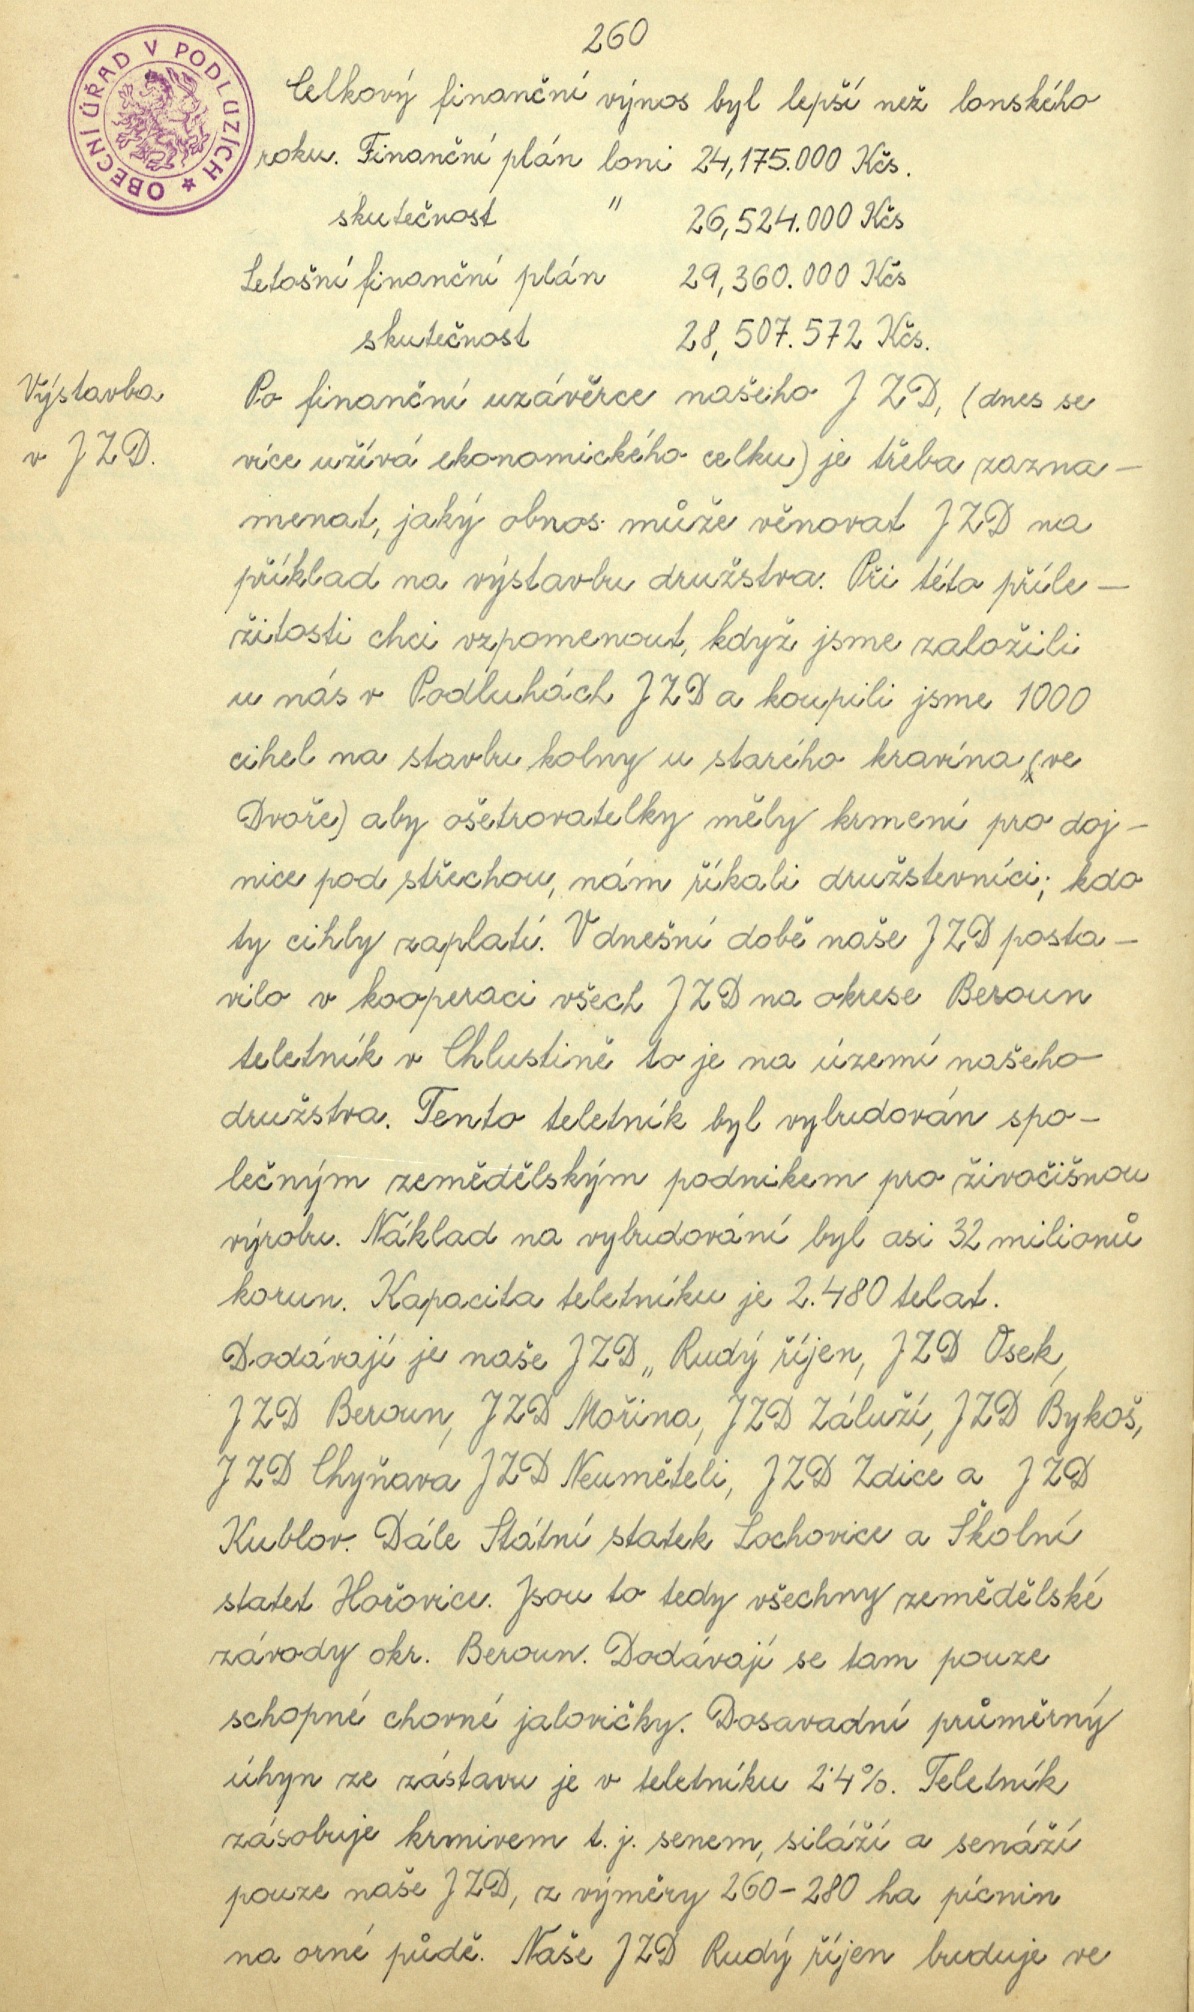 260
OBECNÍ ÚŘAD V PODLUZÍCH
Celkový finanční výnos byl lepší než lonského
roku. Finanční plán loni 24,175.000 Kčs.
skutečnost " 26,524.000 Kčs
Letošní finanční plán 29,360.000 Kčs
skutečnost 28,507.572 Kčs.
Výstavba
v JZD.
Po finanční uzávěrce našeho JZD, (dnes se
více užívá ekonomického celku) je třeba zazna-
menat, jaký obnos může věnovat JZD na
příklad na výstavbu družstva. Při této příle-
žitosti chci vzpomenout, když jsme založili
u nás v Podluhách JZD a koupili jsme 1000
cihel na stavbu kolny u starého kravína (ve
Dvoře) aby ošetrovatelky měly krmení pro doj-
nice pod střechou, nám říkali družstevníci; kdo
ty cihly zaplatí. V dnešní době naše JZD posta-
vilo v kooperaci všech JZD na okrese Beroun
teletník v Chlustině to je na území našeho
družstva. Tento teletník byl vybudován spo-
lečným zemědělským podnikem pro živočišnou
výrobu. Náklad na vybudování byl asi 32 milionů
korun. Kapacita teletníku je 2.480 telat.
Dodávají je naše JZD „Rudý říjen, JZD Osek,
JZD Beroun, JZD Mořina, JZD Záluží, JZD Bykoš,
JZD Chyňava JZD Neuměteli, JZD Zdice a JZD
Kublov. Dále Státní statek Lochovice a Školní
statet Hořovice. Jsou to tedy všechny zemědělské
závody okr. Beroun. Dodávají se tam pouze
schopné chovné jalovičky. Dosavadní průměrný
úhyn ze zástavu je v teletníku 2˙4%. Teletník
zásobuje krmivem t.j. senem, siláží a senáží
pouze naše JZD, z výměry 260-280 ha pícnin
na orné půdě. Naše JZD Rudý říjen buduje ve